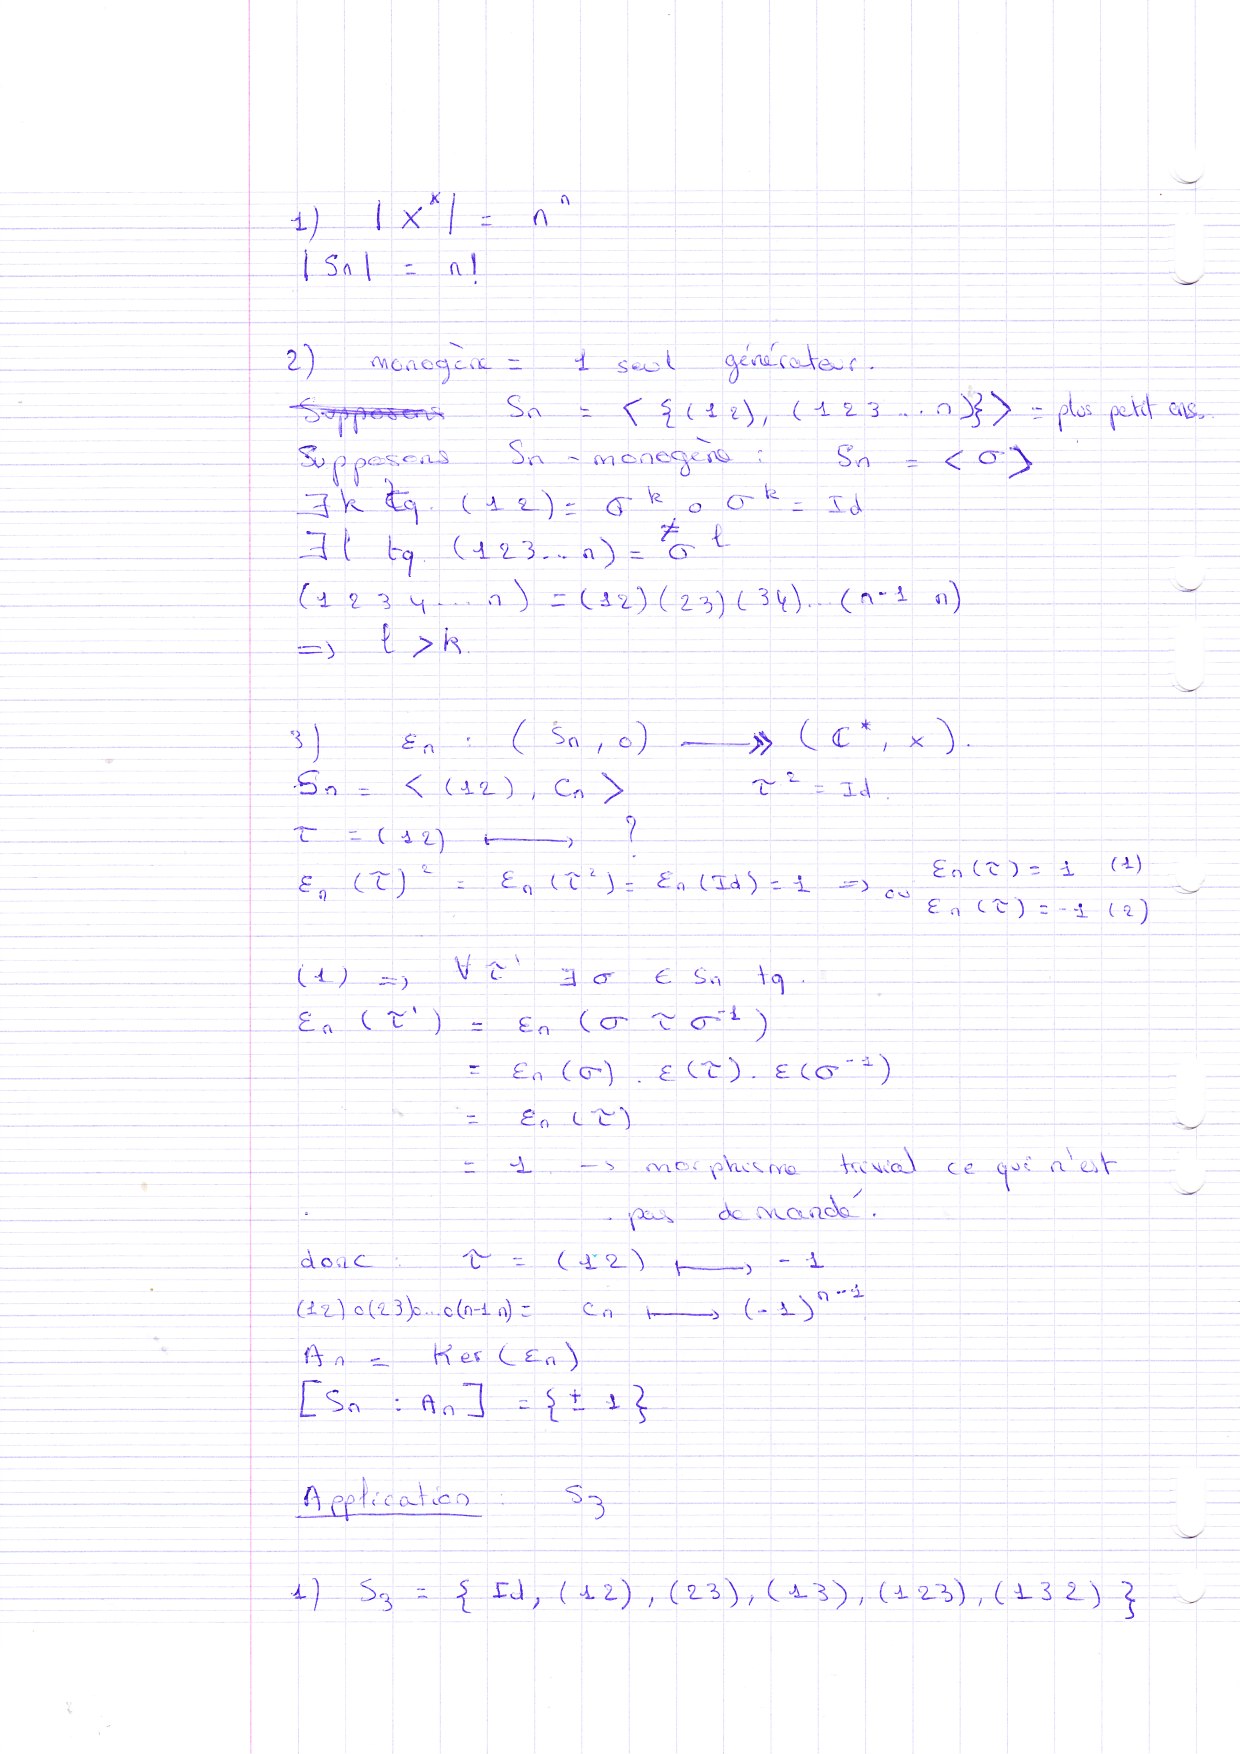 1) | X^X | = n^n
| Sn | = n!
2) monogène = 1 seul générateur.
Supposons Sn = < {(12), (123...n)} > = plus petit ens.
Supposons Sn monogène : Sn = < σ >
∃ k tq. (12) = σ^k, σ^k ∘ σ^k = Id
∃ l tq. (123...n) = σ^l
≠
(1 2 3 4 ... n) = (12)(23)(34)...(n-1 n)
=> l > k.
3) εn : (Sn, ∘) ↠ (ℂ*, ×).
Sn = < (12), Cn > τ² = Id.
τ = (12) ⟼ ?
εn (τ)² = εn (τ²) = εn (Id) = 1 => εn (τ) = 1 (1)
ou εn (τ) = -1 (2)
(1) => ∀ τ' ∃ σ ∈ Sn tq.
εn (τ') = εn (σ τ σ^-1)
= εn (σ) . ε(τ). ε(σ^-1)
= εn (τ)
= 1 → morphisme trivial ce qui n'est
pas demandé.
donc : τ = (12) ⟼ -1
(12)∘(23)∘...∘(n-1 n) = Cn ⟼ (-1)^n-1
An = Ker (εn)
[Sn : An] = {± 1}
Application : S3
1) S3 = { Id, (12), (23), (13), (123), (132) }